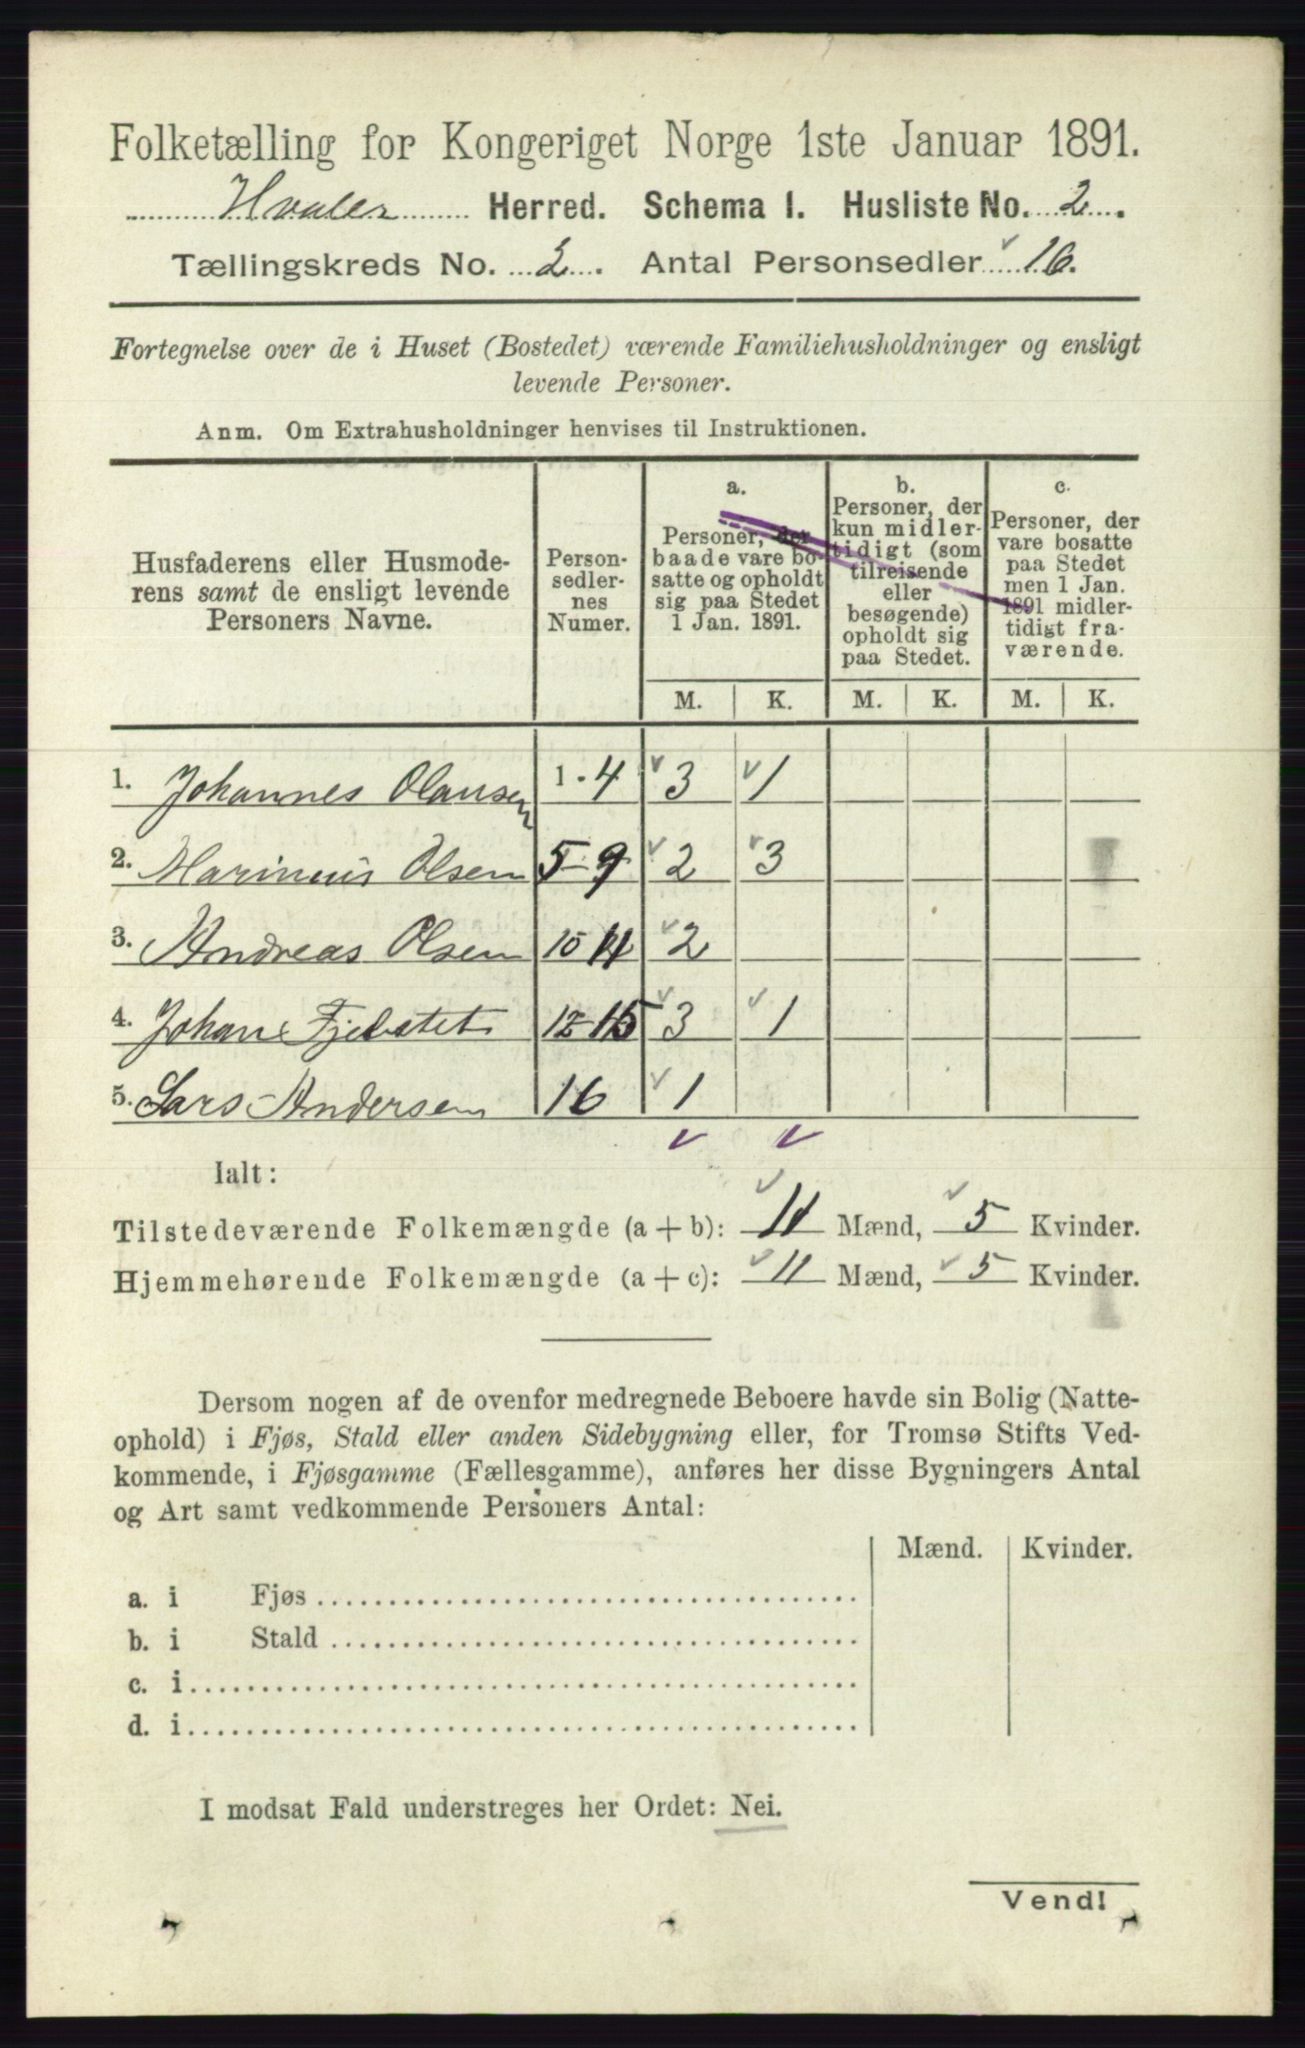 Folketælling for Kongeriget Norge 1ste Januar 1891.
Hvaler Herred. Schema I. Husliste No. 2.
Tællingskreds No. 2. Antal Personsedler 16.
Fortegnelse over de i Huset (Bostedet) værende Familiehusholdninger og ensligt
levende Personer.
Anm. Om Extrahusholdninger henvises til Instruktionen.
Husfaderens eller Husmode-
rens samt de ensligt levende
Personers Navne.
Person-
sedler-
nes
Numer.
a.
Personer, der
baade vare bo-
satte og opholdt
sig paa Stedet
1 Jan. 1891.
b.
Personer, der
kun midler-
tidigt (som
tilreisende
eller
besøgende)
opholdt sig
paa Stedet.
c.
Personer, der
vare bosatte
paa Stedet
men 1 Jan.
1891 midler-
tidigt fra-
værende.
M. K. M. K. M. K.
1. Johannes Olausen 1 - 4 3 1
2. Marinius Olsen 5-9 2 3
3. Andreas Olsen 10 11 2
4. Johan 12-15 3 1
5. Lars Andersen 16 1
Ialt:
Tilstedeværende Folkemængde (a + b): 11 Mænd, 5 Kvinder.
Hjemmehørende Folkemængde (a + c): 11 Mænd, 5 Kvinder.
Dersom nogen af de ovenfor medregnede Beboere havde sin Bolig (Natte-
ophold) i Fjøs, Stald eller anden Sidebygning eller, for Tromsø Stifts Ved-
kommende, i Fjøsgamme (Fællesgamme), anføres her disse Bygningers Antal
og Art samt vedkommende Personers Antal:
Mænd. Kvinder.
a. i Fjøs
b. i Stald
c. i
d. i
I modsat Fald understreges her Ordet: Nei.
Vend!